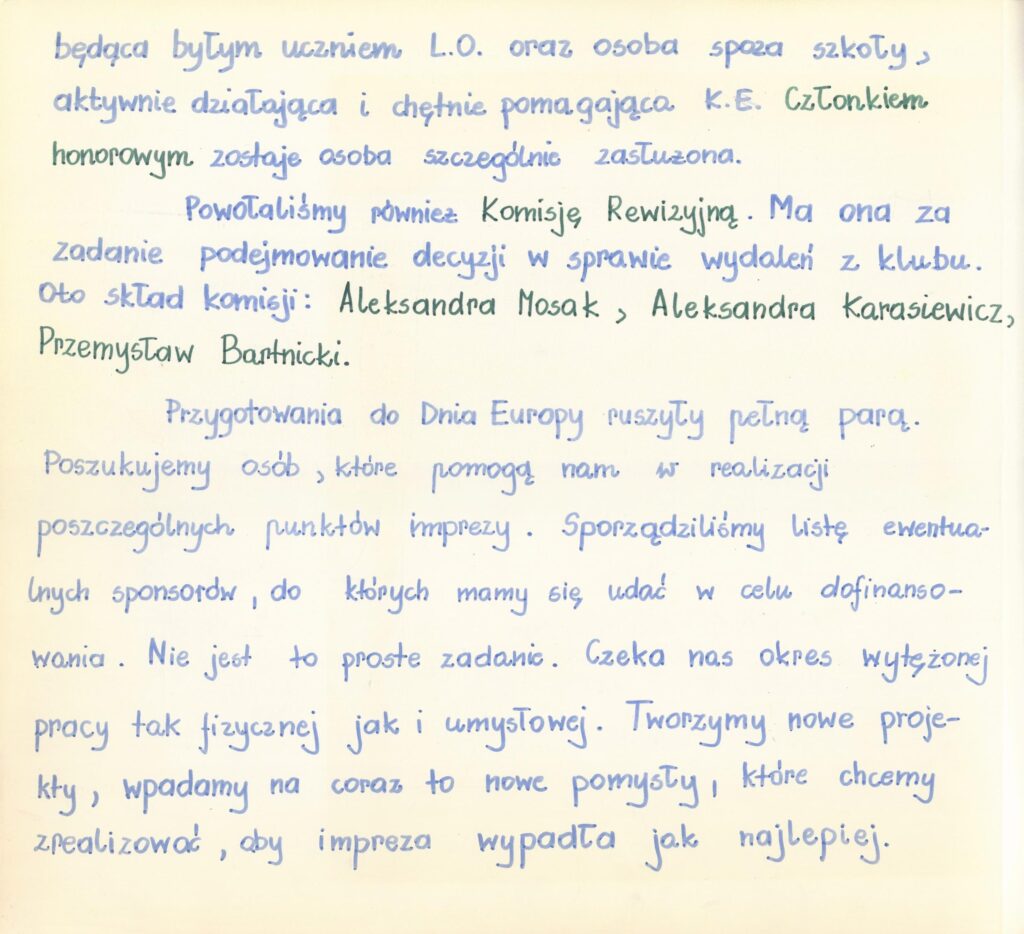 będąca byłym uczniem L.O. oraz osoba spoza szkoły,
aktywnie działająca i chętnie pomagająca K.E. Członkiem
honorowym zostaje osoba szczególnie zasłużona.
Powołaliśmy również Komisję Rewizyjną. Ma ona za
zadanie podejmowanie decyzji w sprawie wydaleń z klubu.
Oto skład komisji: Aleksandra Mosak, Aleksandra Karasiewicz,
Przemysław Bartnicki.
Przygotowania do Dnia Europy ruszyły pełną parą.
Poszukujemy osób, które pomogą nam w realizacji
poszczególnych punktów imprezy. Sporządziliśmy listę ewentua-
lnych sponsorów, do których mamy się udać w celu dofinanso-
wania. Nie jest to proste zadanie. Czeka nas okres wytężonej
pracy tak fizycznej jak i umysłowej. Tworzymy nowe proje-
kty, wpadamy na coraz to nowe pomysły, które chcemy
zrealizować, aby impreza wypadła jak najlepiej.